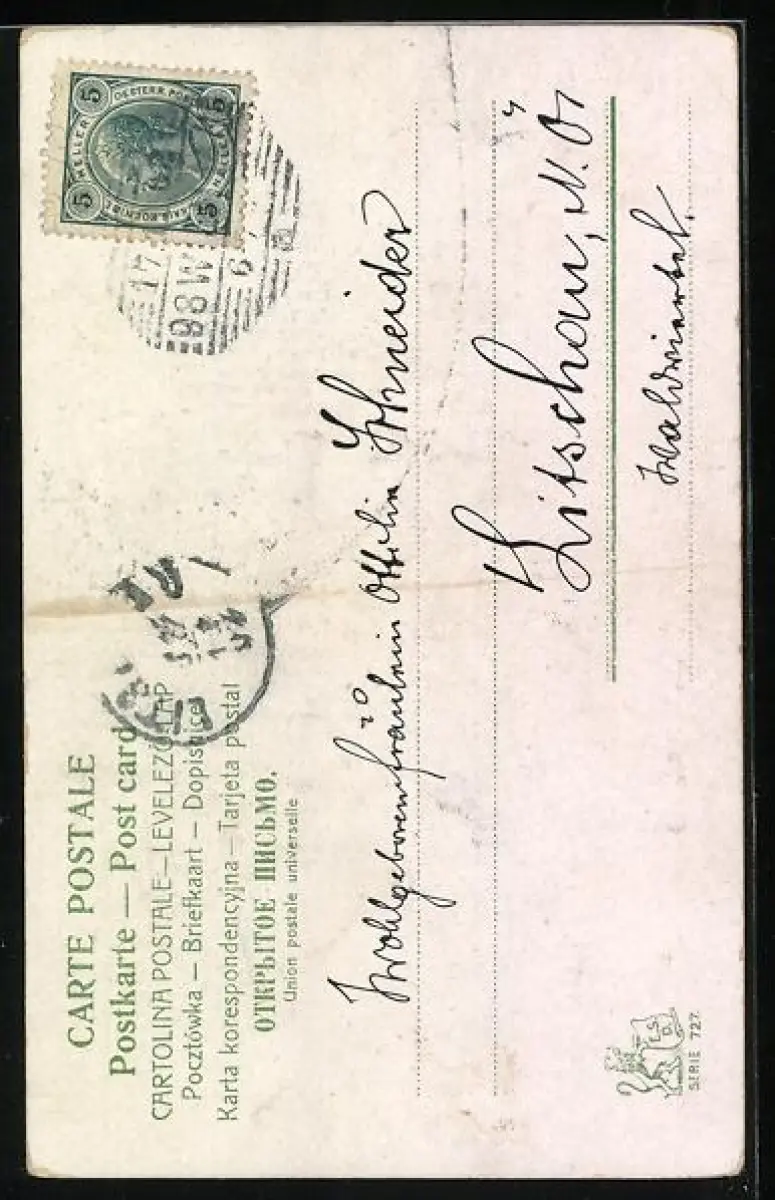 CARTE POSTALE
Postkarte — Post card
CARTOLINA POSTALE — LEVELEZŐ-LAP
Pocztówka — Briefkaart — Dopisnice
Karta korespondencyjna — Tarjeta postal
ОТКРЫТОЕ ПИСЬМО.
Union postale universelle
5 OESTERR. POST 5
HELLER
5 5
17
98W
6
Wohlgeboren Fräulein Ottilie Schneider
Kitschau, N. Ö.
Waldviertel.
E.S.D.
SERIE 727.